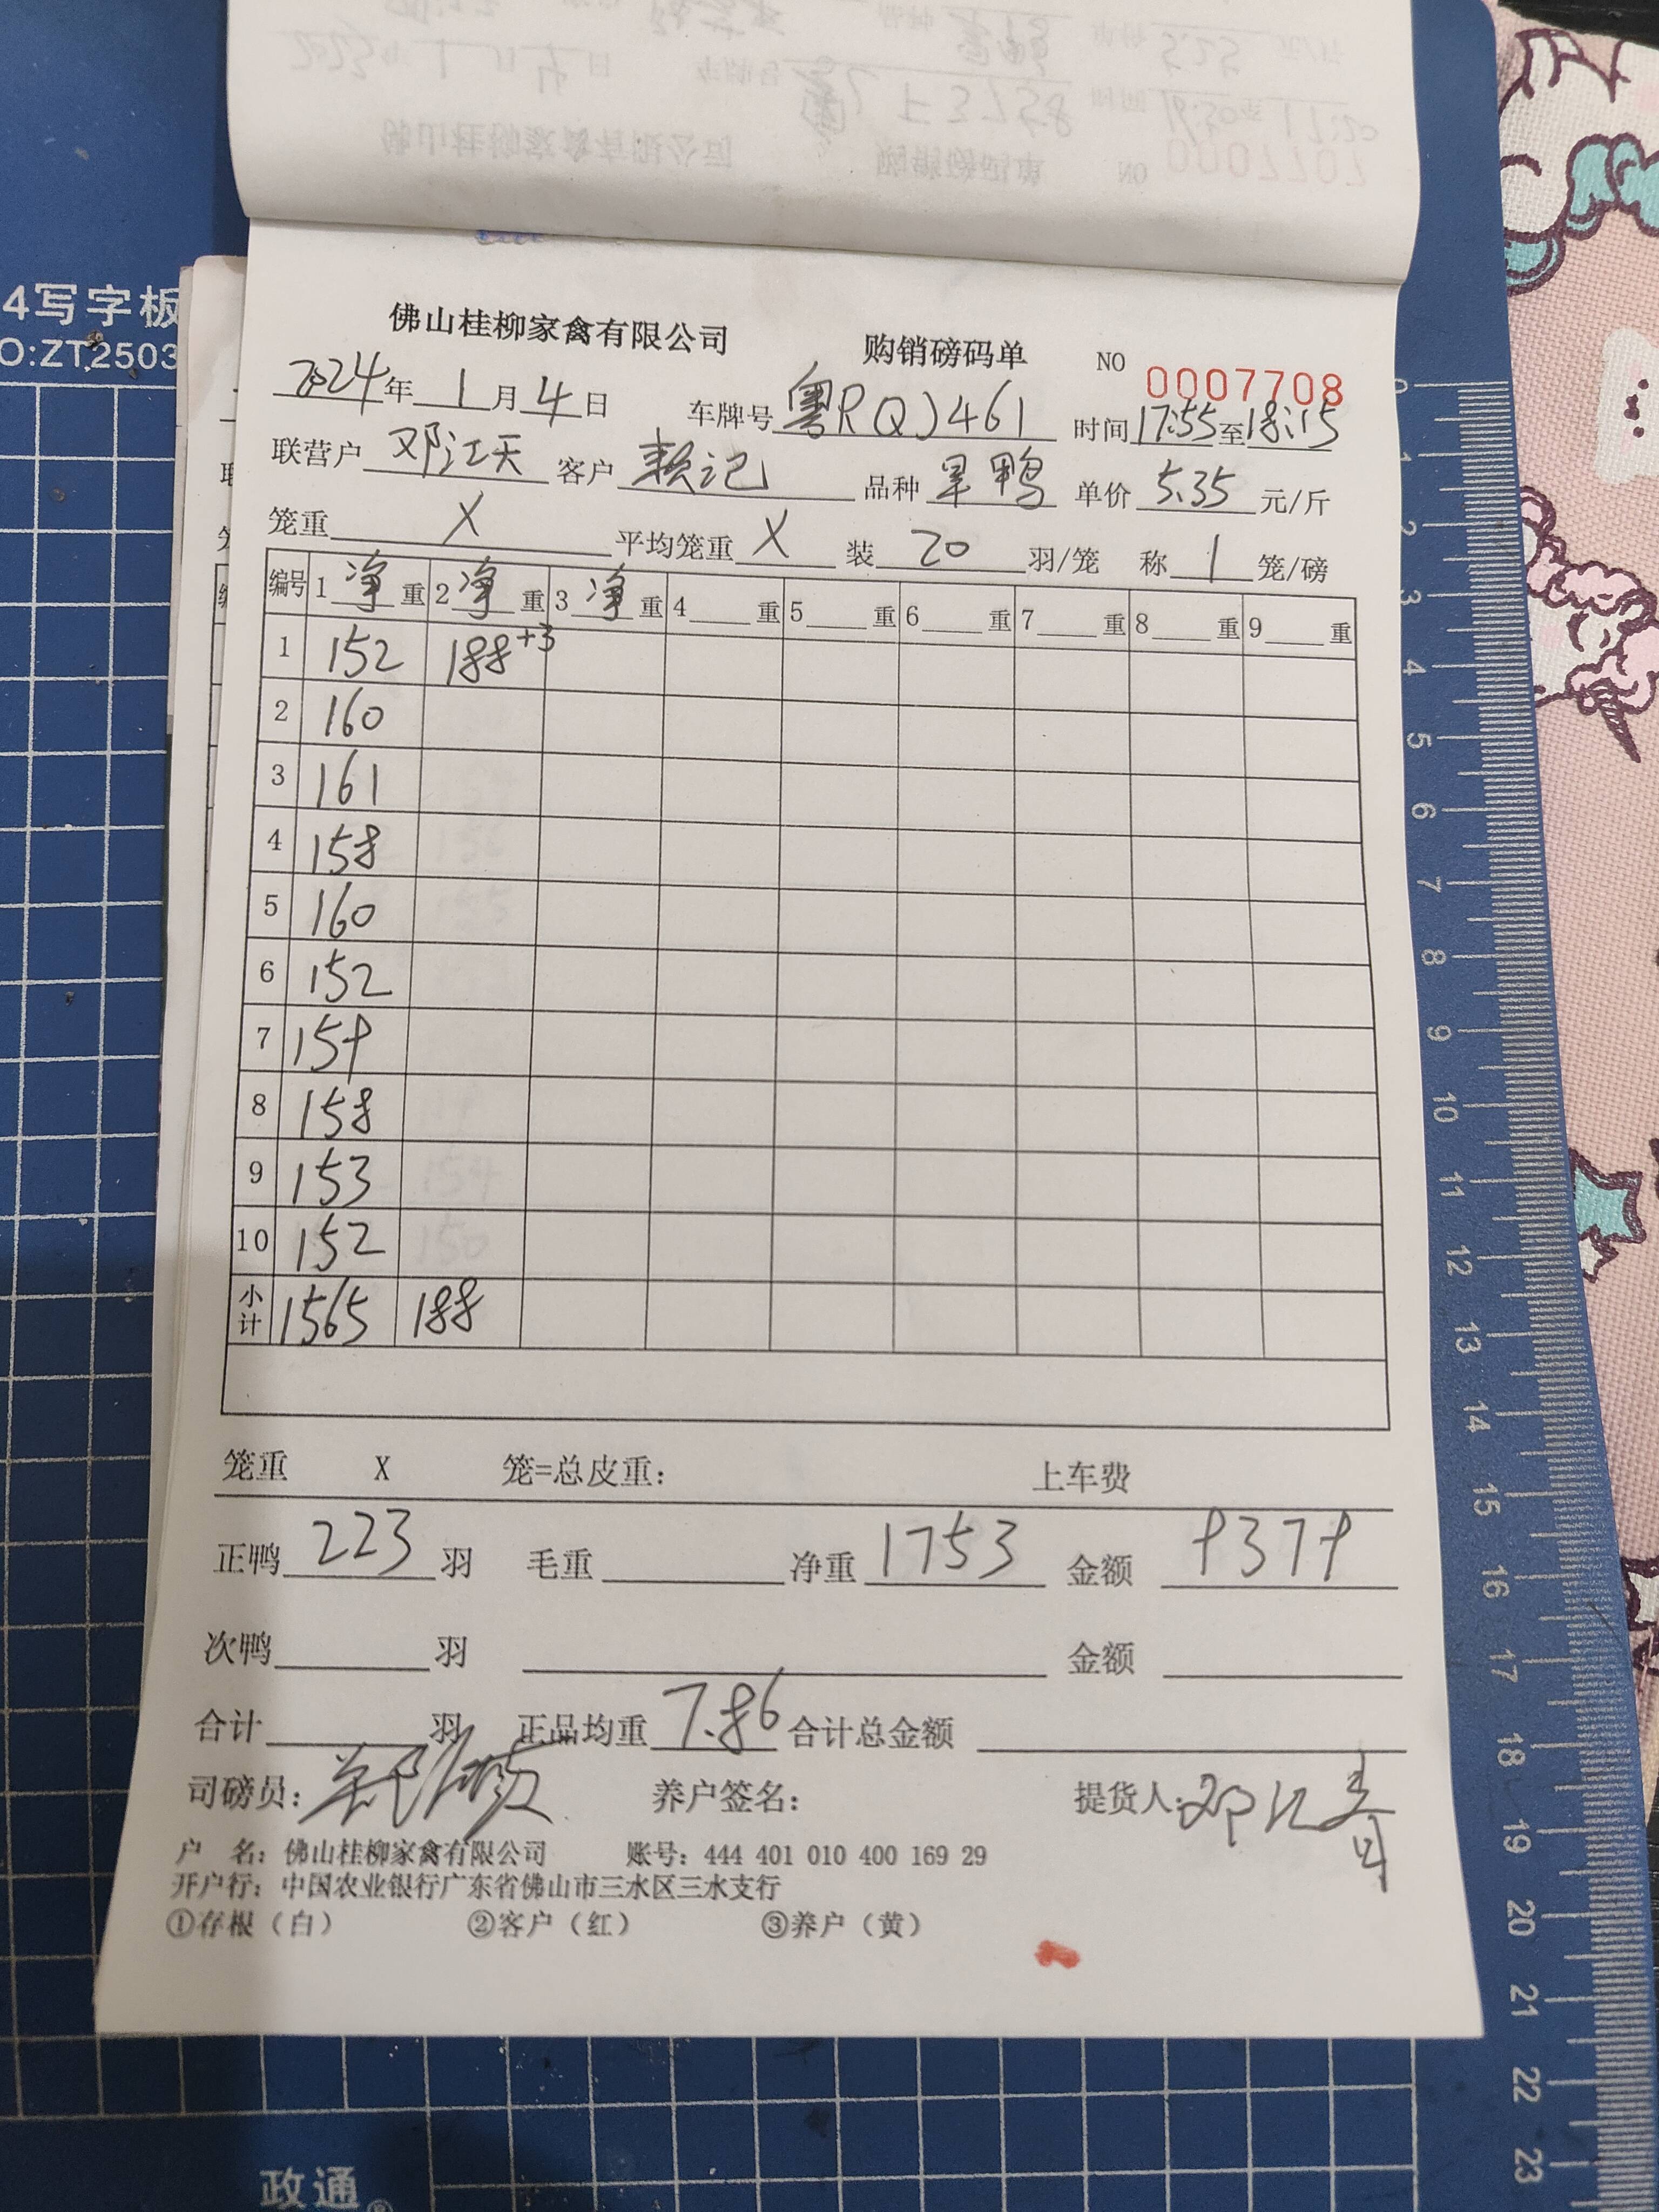 4写字板
O:ZT2503
佛山桂柳家禽有限公司 购销磅码单 NO 0007708
2024年1月4日 车牌号 粤RQJ461 时间 17:55至18:15
联营户 邓江天 客户 赖记 品种 旱鸭 单价 5.35 元/斤
笼重 X 平均笼重 X 装 20 羽/笼 称 1 笼/磅
编号 1净重 2净重 3净重 4 重 5 重 6 重 7 重 8 重 9 重
1 152 188+3
2 160
3 161
4 158
5 160
6 152
7 159
8 158
9 153
10 152
小计 1565 188
笼重 X 笼=总皮重: 上车费
正鸭 223 羽 毛重 净重 1753 金额 9379
次鸭 羽 金额
合计 羽 正品均重 7.86 合计总金额
司磅员: 养户签名: 提货人:
户 名: 佛山桂柳家禽有限公司 账号: 444 401 010 400 169 29
开户行: 中国农业银行广东省佛山市三水区三水支行
①存根（白） ②客户（红） ③养户（黄）
0
1
2
3
4
5
6
7
8
9
10
11
12
13
14
15
16
17
18
19
20
21
22
23
政通®